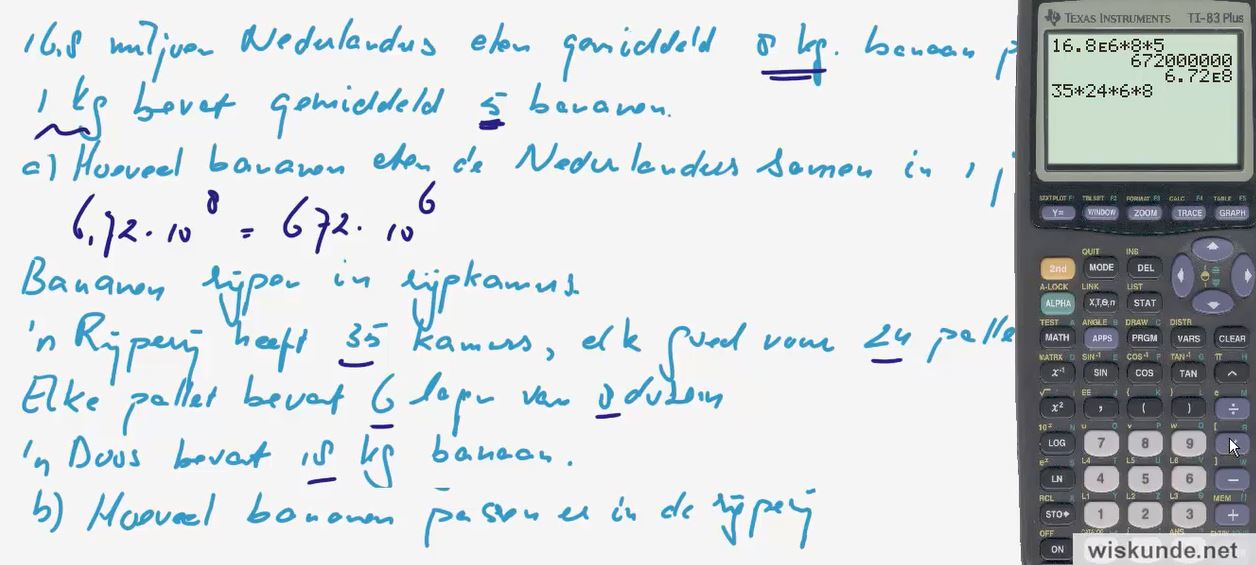 16,8 miljoen Nederlanders eten gemiddeld 8 kg. banaan p
1 kg bevat gemiddeld 5 bananen.
a) Hoeveel bananen eten de Nederlanders samen in 1 j
6,72 · 10⁸ = 672 · 10⁶
Bananen rijpen in rijpkamers.
'n Rijperij heeft 35 kamers, elk goed voor 24 palle
Elke pallet bevat 6 lagen van 8 dozen
'n Doos bevat 18 kg banaan.
b) Hoeveel bananen passen er in de rijperij
TEXAS INSTRUMENTS TI-83 Plus
16.8E6*8*5
672000000
6.72E8
35*24*6*8
STATPLOT F1 TBLSET F2 FORMAT F3 CALC F4 TABLE F5
Y= WINDOW ZOOM TRACE GRAPH
QUIT INS
2nd MODE DEL
A-LOCK LINK LIST
ALPHA X,T,θ,n STAT
TEST A ANGLE B DRAW C DISTR
MATH APPS PRGM VARS CLEAR
MATRX D SIN⁻¹ E COS⁻¹ F TAN⁻¹ G π H
x⁻¹ SIN COS TAN ^
√ I EE J { K } L e M
x² , ( ) ÷
10ˣ N u O v P w Q [ R
LOG 7 8 9
eˣ S L4 T L5 U L6 V ] W
LN 4 5 6 −
RCL X L1 Y L2 Z L3 θ MEM "
STO▸ 1 2 3 +
OFF
ON
wiskunde.net